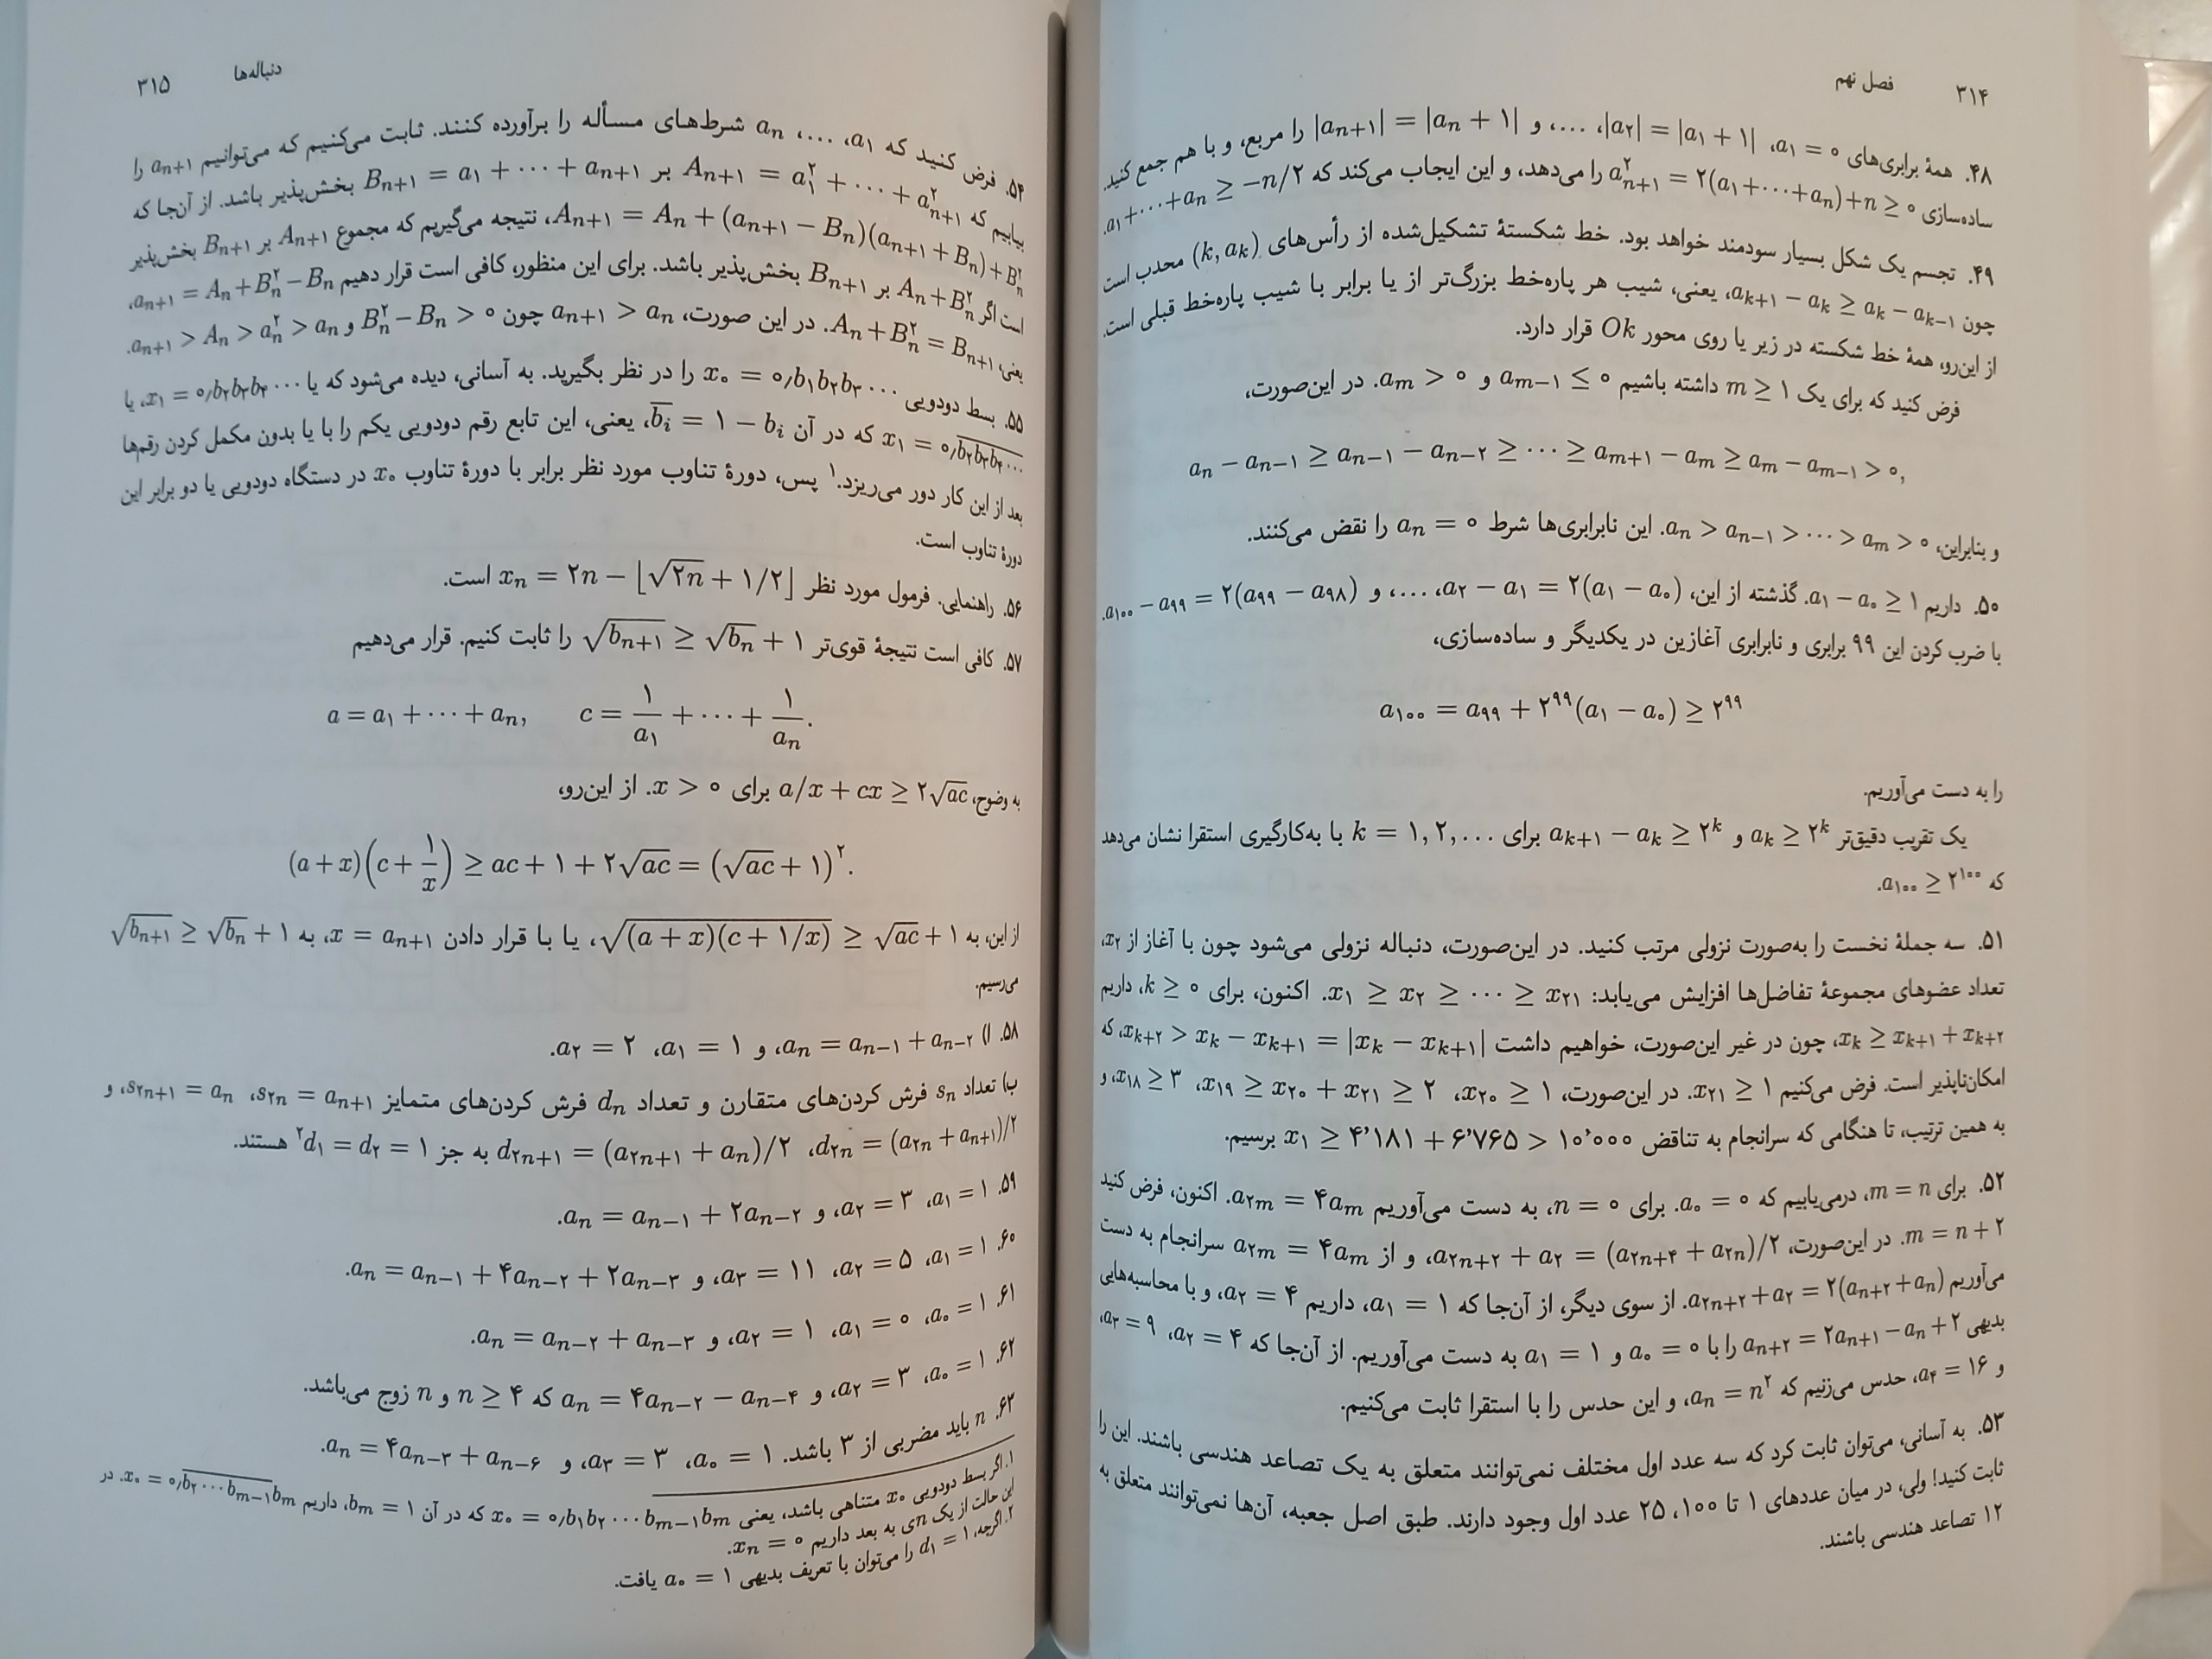 ۳۱۴ فصل نهم
۴۸. همهٔ برابری‌های a₁ = ۰، |a₂| = |a₁ + ۱|، …، و |aₙ₊₁| = |aₙ + ۱| را مربع، و با هم جمع کنید.
ساده‌سازی a²ₙ₊₁ = ۲(a₁+⋯+aₙ)+n ≥ ۰ را می‌دهد، و این ایجاب می‌کند که a₁+⋯+aₙ ≥ −n/۲.
۴۹. تجسم یک شکل بسیار سودمند خواهد بود. خط شکستهٔ تشکیل‌شده از رأس‌های (k, aₖ) محدب است
چون aₖ₊₁ − aₖ ≥ aₖ − aₖ₋₁، یعنی، شیب هر پاره‌خط بزرگ‌تر از یا برابر با شیب پاره‌خط قبلی است.
از این‌رو، همهٔ خط شکسته در زیر یا روی محور Ok قرار دارد.
فرض کنید که برای یک m ≥ ۱ داشته باشیم aₘ₋₁ ≤ ۰ و aₘ > ۰. در این‌صورت،
aₙ − aₙ₋₁ ≥ aₙ₋₁ − aₙ₋₂ ≥ ⋯ ≥ aₘ₊₁ − aₘ ≥ aₘ − aₘ₋₁ > ۰,
و بنابراین، aₙ > aₙ₋₁ > ⋯ > aₘ > ۰. این نابرابری‌ها شرط aₙ = ۰ را نقض می‌کنند.
۵۰. داریم a₁ − a₀ ≥ ۱. گذشته از این، a₂ − a₁ = ۲(a₁ − a₀)، …، و a₁₀₀ − a₉₉ = ۲(a₉₉ − a₉₈).
با ضرب کردن این ۹۹ برابری و نابرابری آغازین در یکدیگر و ساده‌سازی،
a₁₀₀ = a₉₉ + ۲⁹⁹(a₁ − a₀) ≥ ۲⁹⁹
را به دست می‌آوریم.
یک تقریب دقیق‌تر aₖ ≥ ۲ᵏ و aₖ₊₁ − aₖ ≥ ۲ᵏ برای k = ۱, ۲, … با به‌کارگیری استقرا نشان می‌دهد
که a₁₀₀ ≥ ۲¹⁰⁰.
۵۱. سه جملهٔ نخست را به‌صورت نزولی مرتب کنید. در این‌صورت، دنباله نزولی می‌شود چون با آغاز از x₂،
تعداد عضوهای مجموعهٔ تفاضل‌ها افزایش می‌یابد: x₁ ≥ x₂ ≥ ⋯ ≥ x₂₁. اکنون، برای k ≥ ۰، داریم
xₖ ≥ xₖ₊₁ + xₖ₊₂، چون در غیر این‌صورت، خواهیم داشت xₖ₊₂ > xₖ − xₖ₊₁ = |xₖ − xₖ₊₁|، که
امکان‌ناپذیر است. فرض می‌کنیم x₂₁ ≥ ۱. در این‌صورت، x₂₀ ≥ ۱، x₁₉ ≥ x₂₀ + x₂₁ ≥ ۲، x₁₈ ≥ ۳، و
به همین ترتیب، تا هنگامی که سرانجام به تناقض x₁ ≥ ۴٬۱۸۱ + ۶٬۷۶۵ > ۱۰٬۰۰۰ برسیم.
۵۲. برای m = n، درمی‌یابیم که a₀ = ۰. برای n = ۰، به دست می‌آوریم a₂ₘ = ۴aₘ. اکنون، فرض کنید
m = n + ۲. در این‌صورت، a₂ₙ₊₂ + a₂ = (a₂ₙ₊₄ + a₂ₙ)/۲، و از a₂ₘ = ۴aₘ سرانجام به دست
می‌آوریم a₂ₙ₊₂ + a₂ = ۲(aₙ₊₂ + aₙ). از سوی دیگر، از آن‌جا که a₁ = ۱، داریم a₂ = ۴، و با محاسبه‌هایی
بدیهی aₙ₊₂ = ۲aₙ₊₁ − aₙ + ۲ را با a₀ = ۰ و a₁ = ۱ به دست می‌آوریم. از آن‌جا که a₂ = ۴، a₃ = ۹،
و a₄ = ۱۶، حدس می‌زنیم که aₙ = n²، و این حدس را با استقرا ثابت می‌کنیم.
۵۳. به آسانی، می‌توان ثابت کرد که سه عدد اول مختلف نمی‌توانند متعلق به یک تصاعد هندسی باشند. این را
ثابت کنید! ولی، در میان عددهای ۱ تا ۱۰۰، ۲۵ عدد اول وجود دارند. طبق اصل جعبه، آن‌ها نمی‌توانند متعلق به
۱۲ تصاعد هندسی باشند.
دنباله‌ها ۳۱۵
۵۴. فرض کنید که a₁، …، aₙ شرط‌های مسأله را برآورده کنند. ثابت می‌کنیم که می‌توانیم aₙ₊₁ را
بیابیم که Aₙ₊₁ = a²₁ + ⋯ + a²ₙ₊₁ بر Bₙ₊₁ = a₁ + ⋯ + aₙ₊₁ بخش‌پذیر باشد. از آن‌جا که
Aₙ₊₁ = Aₙ + (aₙ₊₁ − Bₙ)(aₙ₊₁ + Bₙ) + B²ₙ، نتیجه می‌گیریم که مجموع Aₙ₊₁ بر Bₙ₊₁ بخش‌پذیر
است اگر Aₙ + B²ₙ بر Bₙ₊₁ بخش‌پذیر باشد. برای این منظور، کافی است قرار دهیم aₙ₊₁ = Aₙ + B²ₙ − Bₙ،
یعنی، Aₙ + B²ₙ = Bₙ₊₁. در این صورت، aₙ₊₁ > aₙ چون B²ₙ − Bₙ > ۰ و aₙ₊₁ > Aₙ > a²ₙ > aₙ.
۵۵. بسط دودویی x₀ = ۰٫b₁b₂b₃⋯ را در نظر بگیرید. به آسانی، دیده می‌شود که یا x₁ = ۰٫b₂b₃b₄⋯، یا
x₁ = ۰٫b̅₂b̅₃b̅₄⋯ که در آن b̅ᵢ = ۱ − bᵢ، یعنی، این تابع رقم دودویی یکم را با یا بدون مکمل کردن رقم‌ها
بعد از این کار دور می‌ریزد.¹ پس، دورهٔ تناوب مورد نظر برابر با دورهٔ تناوب x₀ در دستگاه دودویی یا دو برابر این
دورهٔ تناوب است.
۵۶. راهنمایی. فرمول مورد نظر xₙ = ۲n − ⌊√(۲n) + ۱/۲⌋ است.
۵۷. کافی است نتیجهٔ قوی‌تر √bₙ₊₁ ≥ √bₙ + ۱ را ثابت کنیم. قرار می‌دهیم
a = a₁ + ⋯ + aₙ, c = ۱/a₁ + ⋯ + ۱/aₙ.
به وضوح، a/x + cx ≥ ۲√ac برای x > ۰. از این‌رو،
(a + x)(c + ۱/x) ≥ ac + ۱ + ۲√ac = (√ac + ۱)².
از این، به √((a + x)(c + ۱/x)) ≥ √ac + ۱، یا با قرار دادن x = aₙ₊₁، به √bₙ₊₁ ≥ √bₙ + ۱
می‌رسیم.
۵۸. ا) aₙ = aₙ₋₁ + aₙ₋₂، و a₁ = ۱، a₂ = ۲.
ب) تعداد sₙ فرش کردن‌های متقارن و تعداد dₙ فرش کردن‌های متمایز s₂ₙ = aₙ₊₁، s₂ₙ₊₁ = aₙ، و
d₂ₙ = (a₂ₙ + aₙ₊₁)/۲، d₂ₙ₊₁ = (a₂ₙ₊₁ + aₙ)/۲ به جز d₁ = d₂ = ۱² هستند.
۵۹. a₁ = ۱، a₂ = ۳، و aₙ = aₙ₋₁ + ۲aₙ₋₂.
۶۰. a₁ = ۱، a₂ = ۵، a₃ = ۱۱، و aₙ = aₙ₋₁ + ۴aₙ₋₂ + ۲aₙ₋₃.
۶۱. a₀ = ۱، a₁ = ۰، a₂ = ۱، و aₙ = aₙ₋₂ + aₙ₋₃.
۶۲. a₀ = ۱، a₂ = ۳، و aₙ = ۴aₙ₋₂ − aₙ₋₄ که n ≥ ۴ و n زوج می‌باشد.
۶۳. n باید مضربی از ۳ باشد. a₀ = ۱، a₃ = ۳، و aₙ = ۴aₙ₋₃ + aₙ₋₆.
۱. اگر بسط دودویی x₀ متناهی باشد، یعنی x₀ = ۰٫b₁b₂⋯bₘ₋₁bₘ که در آن bₘ = ۱، داریم x₀ = ۰٫b̅₂⋯b̅ₘ₋₁bₘ. در
این حالت از یک nی به بعد داریم xₙ = ۰.
۲. اگرچه، d₁ = ۱ را می‌توان با تعریف بدیهی a₀ = ۱ یافت.